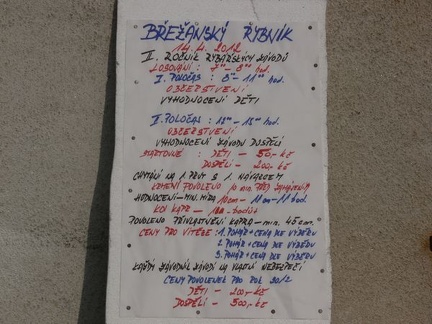 BŘEŽANSKÝ RYBNÍK
14. 4. 2012
II. ROČNÍK RYBÁŘSKÝCH ZÁVODŮ
LOSOVÁNÍ : 7⁰⁰ - 8⁰⁰ hod.
I. POLOČAS : 8⁰⁰ - 11⁰⁰ hod.
OBČERSTVENÍ
VYHODNOCENÍ DĚTI
II. POLOČAS : - 15⁰⁰ hod.
OBČERSTVENÍ
VYHODNOCENÍ ZÁVODU DOSPĚLÍ
STARTOVNÉ : DĚTI - 50,- Kč
DOSPĚLÍ - 200,- Kč
CHYTÁNÍ NA 1 PRUT S 1. NÁVAZCEM
KRMENÍ POVOLENO 10 min. PŘED ZAHÁJENÍM
HODNOCENÍ - MIN. MÍRA 10cm - 1cm - 1 bod
KOI KAPR - bodů
POVOLENO PŘIVLASTNĚNÍ KAPRA - min. 45 cm.
CENY PRO VÍTĚZE : 1. POHÁR + CENA DLE VÝBĚRU
2. POHÁR + CENA DLE VÝBĚRU
3. POHÁR + CENA DLE VÝBĚRU
KAŽDÝ ZÁVODNÍK ZÁVODÍ NA VLASTNÍ NEBEZPEČÍ
CENY POVOLENEK PRO ROK 2012
DĚTI - 200,- Kč
DOSPĚLÍ - 500,- Kč